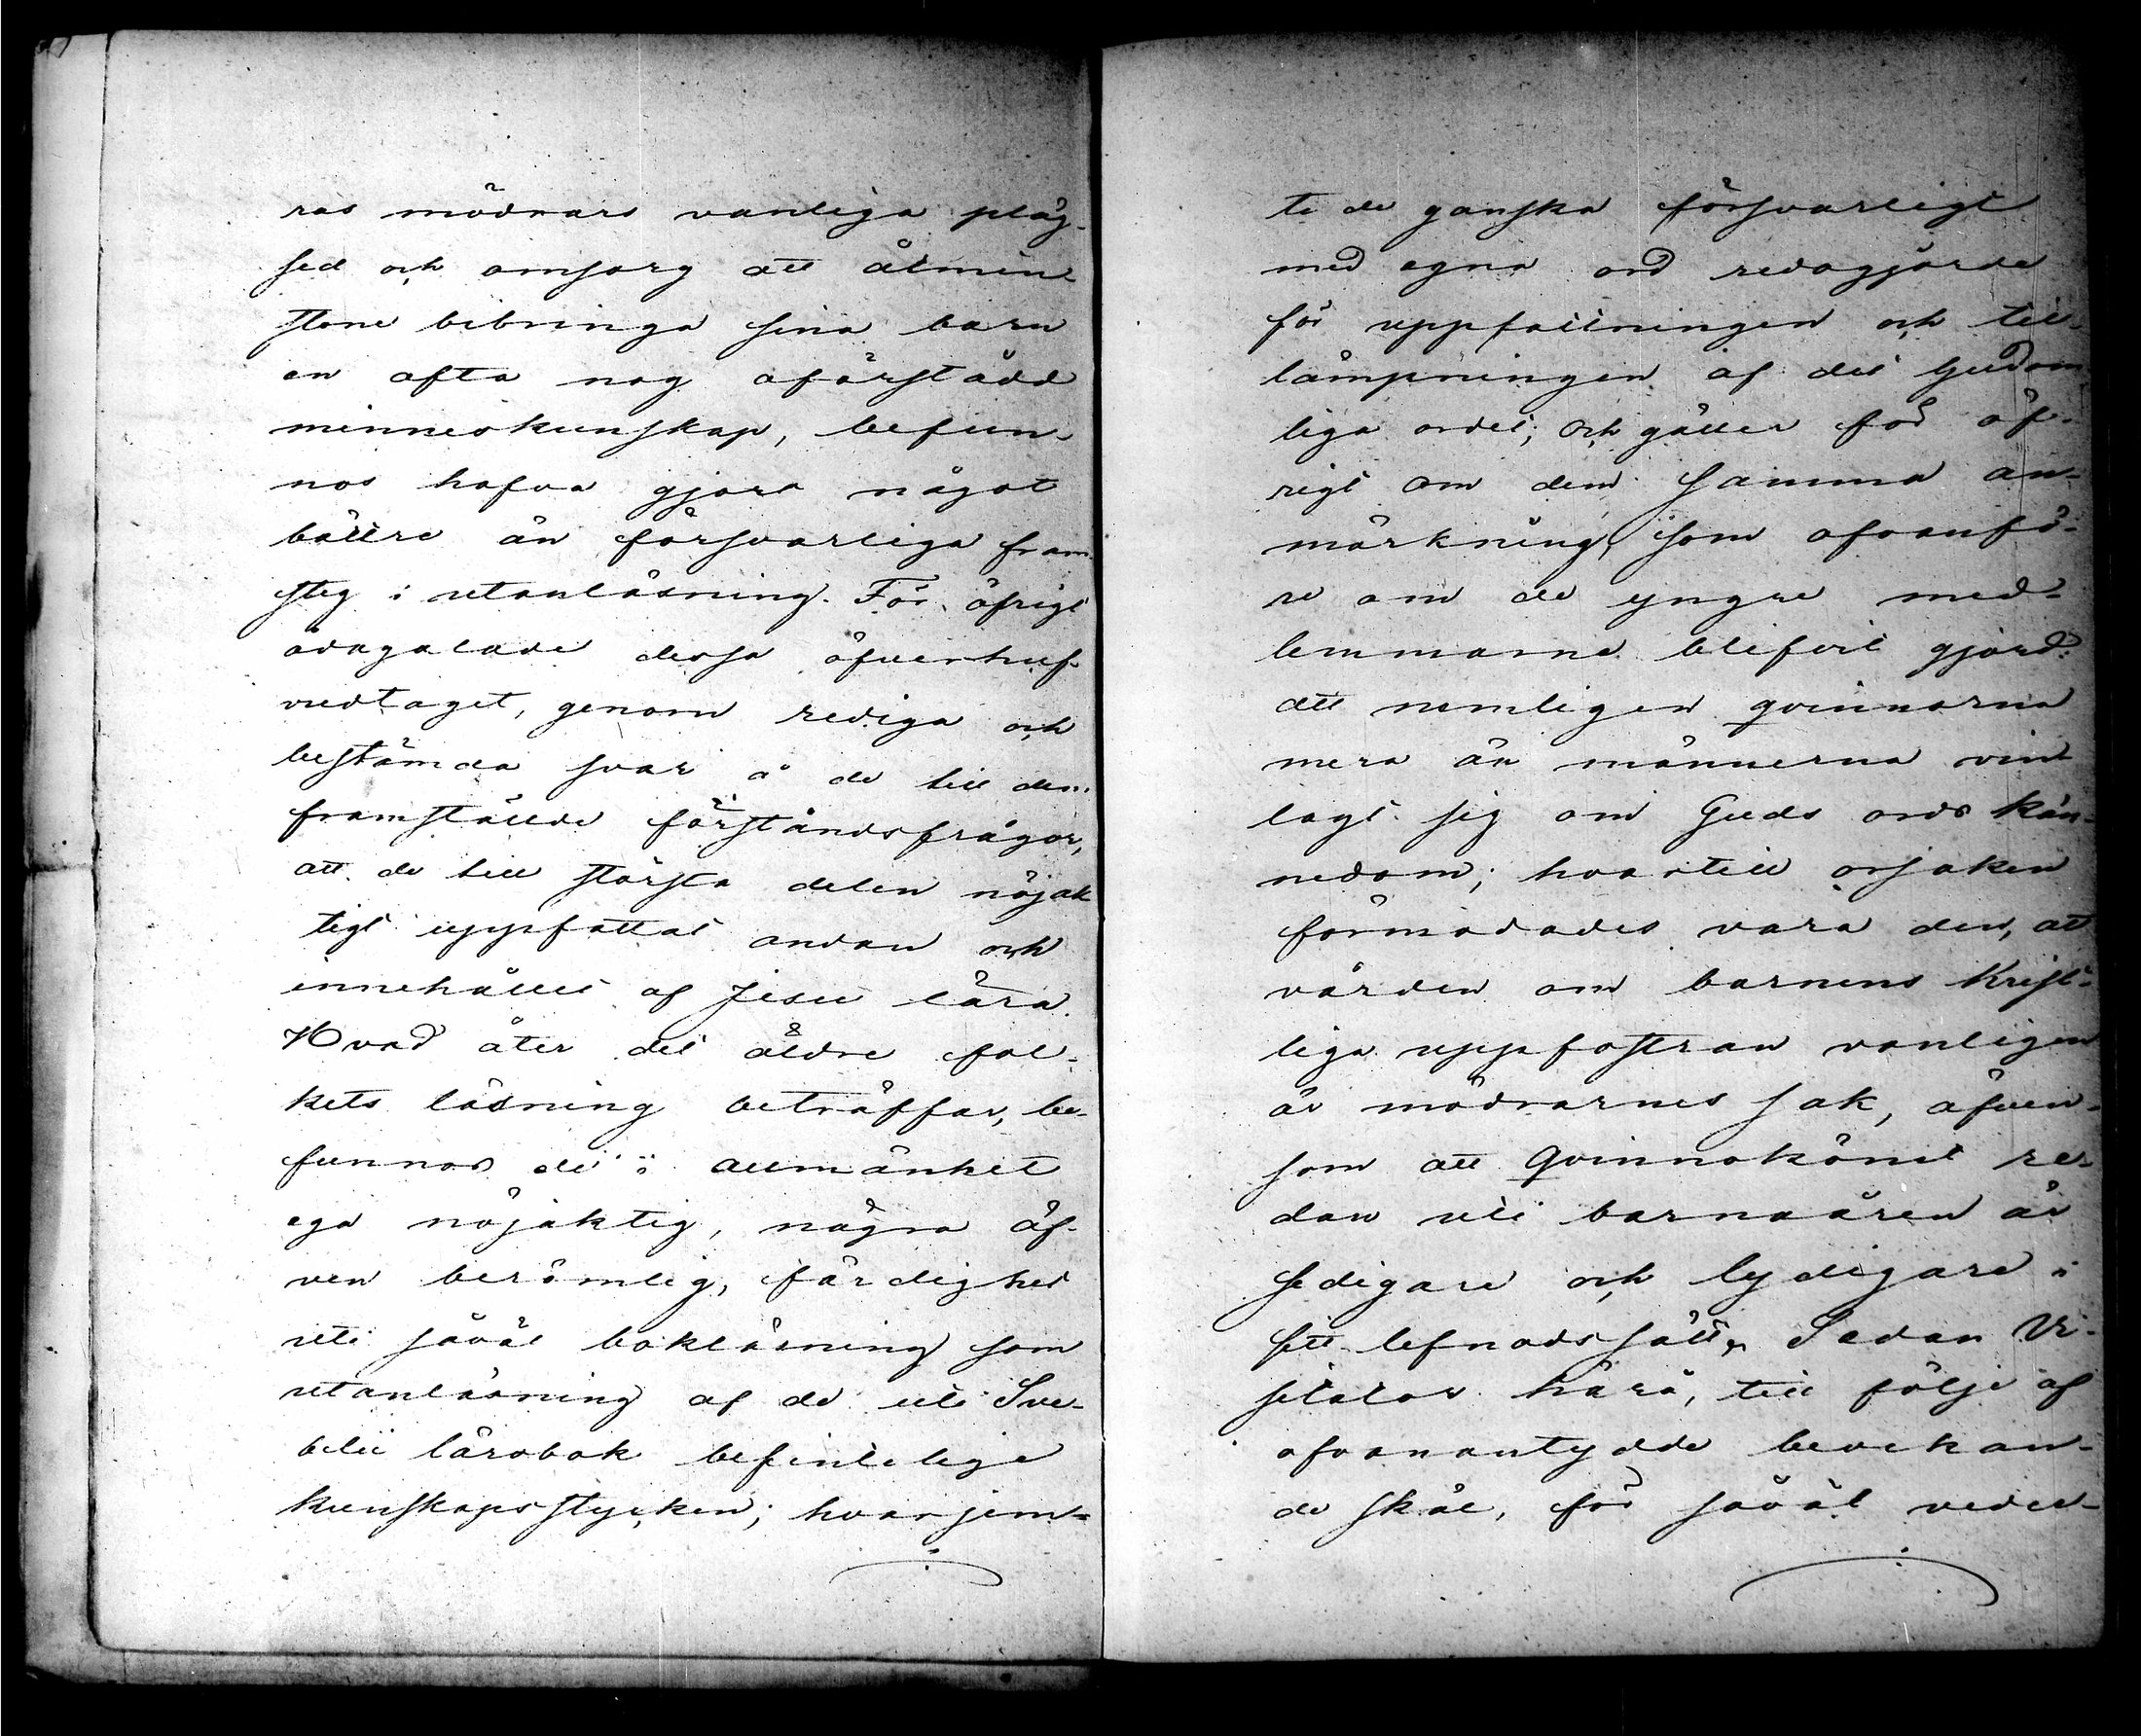 ras mödrars vanliga pläg-
sed och omsorg att åtmin-
stone bibringa sina barn
en ofta nog oförstådd
minneskunskap, befun-
nos hafva gjort något
bättre än försvarliga fram-
steg i utanläsning. För öfrigt
ådagalade dessa öfverhuf-
vudtaget, genom rediga och
bestämda svar å de till dem
framställde förståndsfrågor,
att de till största delen nöjak-
tigt uppfattat andan och
innehållet af Jesu lära.
Hvad åter det äldre fol-
kets läsning beträffar, be-
funnos de i allmänhet
ega nöjaktig, några äf-
ven berömlig, färdighet
uti såväl bokläsning som
utanläsning af de uti Sve-
belii lärobok befintliga
kunskapsstycken; hvarjem-
te de ganska försvarligt
med egna ord redogjorde
för uppfattningen och till-
lämpningen af det Gudom-
liga ordet; och gäller för öf-
rigt om dem samma an-
märkning, som ofvanfö-
re om de yngre med-
lemmarne blifvit gjord:
att nemligen qvinnorna
mera än männerna vin-
lagt sig om Guds ords kän-
nedom; hvartill orsaken
förmodades vara den, att
vården om barnens Krist-
liga uppfostran vanligen
är mödrarnes sak, äfven-
som att Qvinnokönet re-
dan uti barnaåren är
sedigare och lydigare i
sitt lefnadssätt. Sedan Vi-
sitator härå, till följe af
ofvanantydde bevekan-
de skäl, för såväl veder-